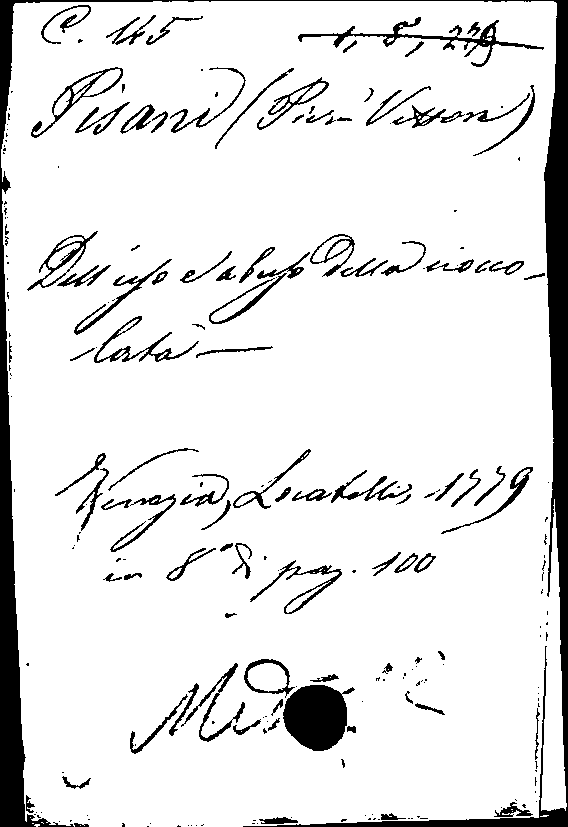 C. 145 1, 8, 279
Pisani (Pier' Vettore)
Dell' uso e abuso della ciocco-
lata —
Venezia, Locatelli, 1779
in 8° di pag. 100